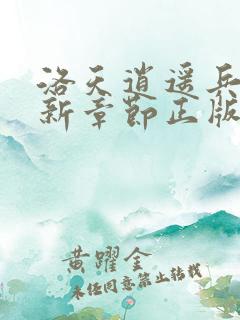 洛天逍遥兵
新章节正版
黄躍金
未经同意禁止转载